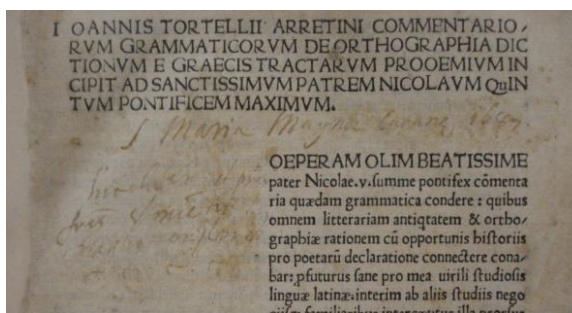 I OANNIS TORTELLII ARRETINI COMMENTARIO,
RVM GRAMMATICORVM DE ORTHOGRAPHIA DIC
TIONVM E GRAECIS TRACTARVM PROOEMIVM IN
CIPIT AD SANCTISSIMVM PATREM NICOLAVM QuIN
TVM PONTIFICEM MAXIMVM.
S Maria Magna
OEPERAM OLIM BEATISSIME
pater Nicolae.v.summe pontifex cōmenta
ria quædam grammatica condere : quibus
omnem litterariam antiqtatem & ortho/
graphiæ rationem cū opportunis historiis
pro poetarū declaratione connectere cona/
bar: pfuturus sane pro mea uirili studiosis
linguæ latinæ.interim ab aliis studiis nego